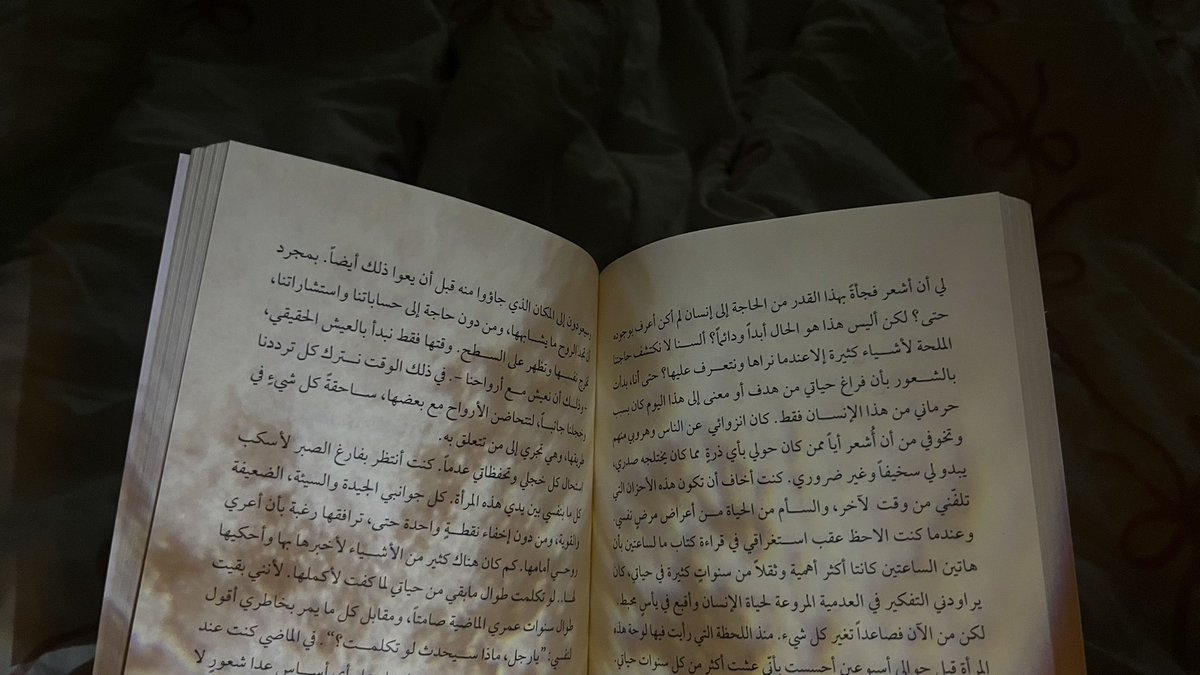 لي أن أشعر فجأةً بهذا القدر من الحاجة إلى إنسان لم أكن أعرف بوجوده
حتى؟ لكن أليس هذا هو الحال أبداً ودائماً؟ ألسنا لا نكتشف حاجتنا
الملحة لأشياء كثيرة إلا عندما نراها ونتعرف عليها؟ حتى أنا، بدأت
بالشعور بأن فراغ حياتي من هدف أو معنى إلى هذا اليوم كان بسبب
حرماني من هذا الإنسان فقط. كان انزوائي عن الناس وهروبي منهم
وتخوفي من أن أُشعر أياً ممن كان حولي بأي ذرةٍ مما كان يختلجه صدري،
يبدو لي سخيفاً وغير ضروري. كنت أخاف أن تكون هذه الأحزان التي
تلفّني من وقت لآخر، والسأم من الحياة من أعراض مرضٍ نفسي.
وعندما كنت الاحظ عقب استغراقي في قراءة كتاب ما لساعتين بأن
هاتين الساعتين كانتا أكثر أهمية وثقلاً من سنواتٍ كثيرة في حياتي، كان
يراودني التفكير في العدمية المروعة لحياة الإنسان وأقبع في يأسٍ محبط.
لكن من الآن فصاعداً تغير كل شيء. منذ اللحظة التي رأيت فيها لوحة هذه
المرأة قبل حوالي أسبوعين أحسست بأني عشت أكثر من كل سنوات حياتي.
وسيعودون إلى المكان الذي جاؤوا منه قبل أن يعوا ذلك أيضاً. بمجرد
أن تجد الروح ما يشابهها، ومن دون حاجة إلى حساباتنا واستشاراتنا،
تخرج نفسها وتظهر على السطح. وقتها فقط نبدأ بالعيش الحقيقي،
-وذلك أن نعيش مع أرواحنا-. في ذلك الوقت نترك كل ترددنا
وخجلنا جانباً، لتتحاضن الأرواح مع بعضها، ساحقةً كل شيءٍ في
طريقها، وهي تجري إلى من تتعلق به.
استحال كل خجلي وتحفظاتي عدماً. كنت أنتظر بفارغ الصبر لأسكب
كل ما بنفسي بين يدي هذه المرأة. كل جوانبي الجيدة والسيئة، الضعيفة
والقوية، ومن دون إخفاء نقطةٍ واحدة حتى، ترافقها رغبة بأن أعري
روحي أمامها. كم كان هناك كثير من الأشياء لأخبرها بها وأحكيها
لها.. لو تكلمت طوال مابقي من حياتي لما كفت لأكملها. لأنني بقيت
طوال سنوات عمري الماضية صامتاً، ومقابل كل ما يمر بخاطري أقول
لنفسي: "يارجل، ماذا سيحدث لو تكلمت؟". في الماضي كنت عند
أي أساس عدا شعورٍ لا